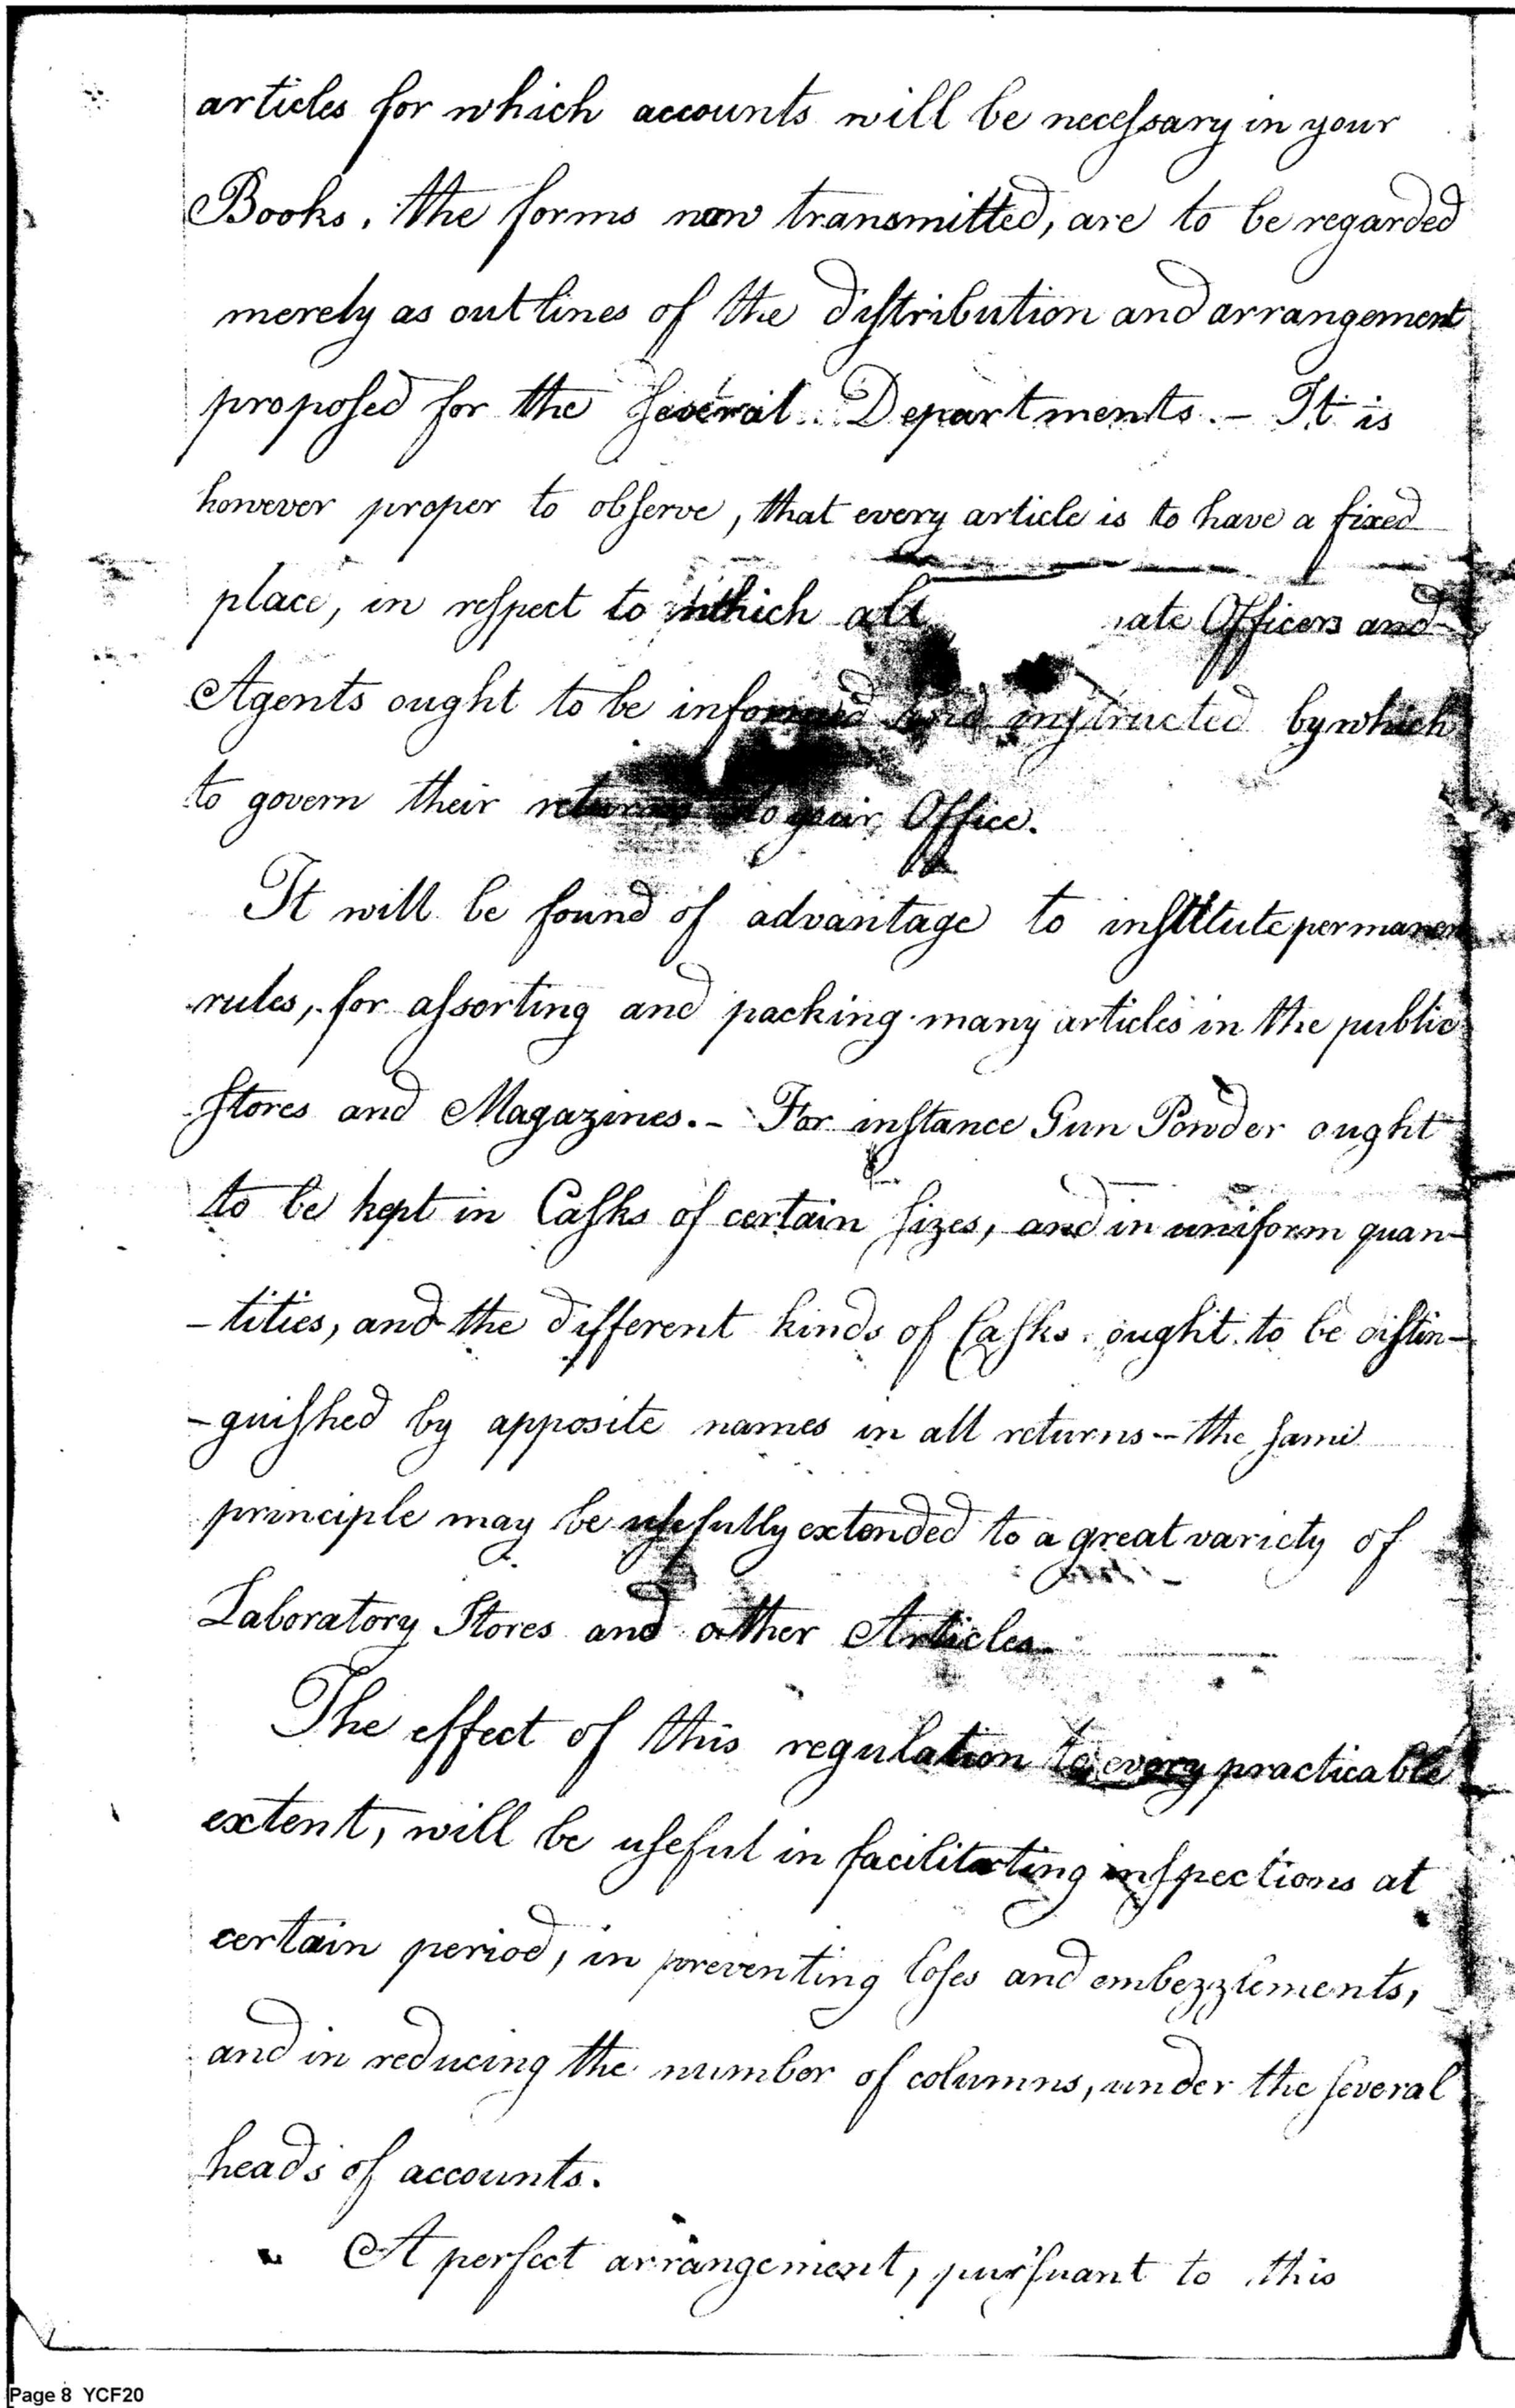 articles for which accounts will be necessary in your
Books, the forms now transmitted, are to be regarded
merely as outlines of the distribution and arrangement
proposed for the several Departments. - It is
however proper to observe, that every article is to have a fixed
place, in respect to which all ate Officers and
Agents ought to be informed and instructed by which
to govern their returns to your Office.
It will be found of advantage to institute permanen
rules, for assorting and packing many articles in the public
Stores and Magazines. - For instance Gun Powder ought
to be kept in Casks of certain sizes, and in uniform quan-
-tities, and the different kinds of Casks ought to be distin-
-guished by apposite names in all returns - the same
principle may be usefully extended to a great variety of
Laboratory Stores and other Articles
The effect of this regulation to every practicable
extent, will be useful in facilitating inspections at
certain period, in preventing loses and embezzlements,
and in reducing the number of columns, under the several
heads of accounts.
A perfect arrangement, pursuant to this
Page 8 YCF20